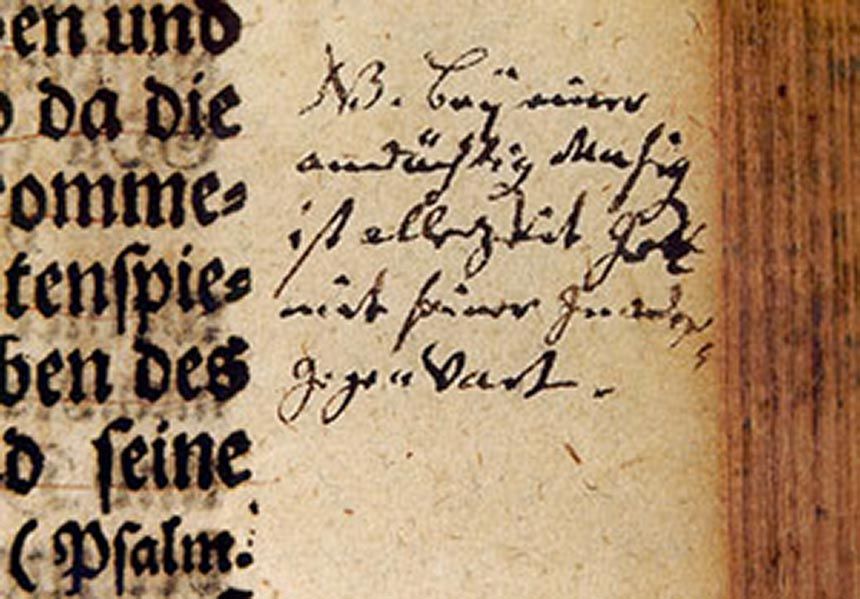 en und
da die
omme=
tenſpie=
ben des
d ſeine
( Pſalm.
NB. Beÿ einer
andächtig Musig
ist allezeit Gott
mit seiner Gnaden
Gegenwart.